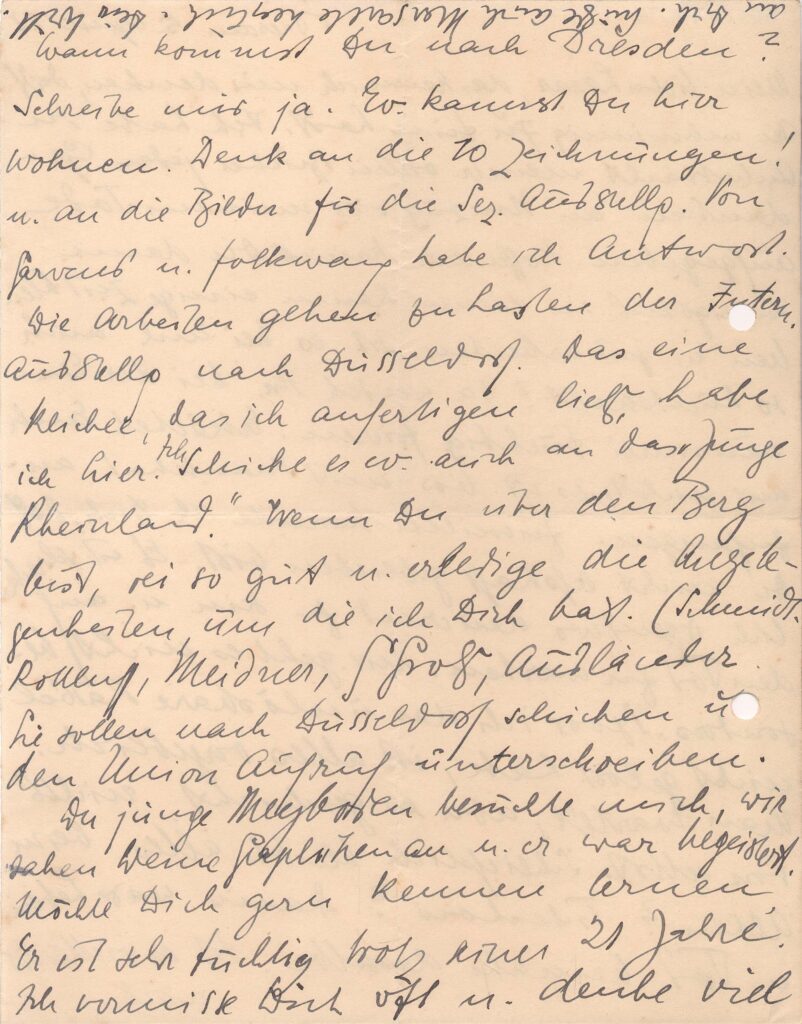 Wann kommst Du nach Dresden?
Schreibe mir ja. Ev. kannst Du hier
wohnen. Denk an die 10 Zeichnungen!
u. an die Bilder für die Sez. Ausstellg. Von
Garvens u. Folkwang habe ich Antwort.
Die Arbeiten gehen zu Lasten der Intern.
Ausstellg nach Düsseldorf. Das eine
Klichee, das ich anfertigen ließ, habe
ich hier. Ich Schicke es ev. auch an „das Junge
Rheinland." Wenn Du über den Berg
bist, sei so gut u. erledige die Angele-
genheiten, um die ich Dich bat. (Schmidt-
Rottluff, Meidner, Groß, Ausländer
Sie sollen nach Düsseldorf schicken u
den Union Aufruf unterschreiben.
Der junge Meyboden besuchte mich, wir
sahen Deine Graphiken an u. er war begeistert.
Möchte Dich gern kennen lernen,
Er ist sehr tüchtig trotz seiner 21 Jahre.
Ich vermisse Dich oft u. denke viel
an Dich. Grüße auch herzlich. Dein Will.